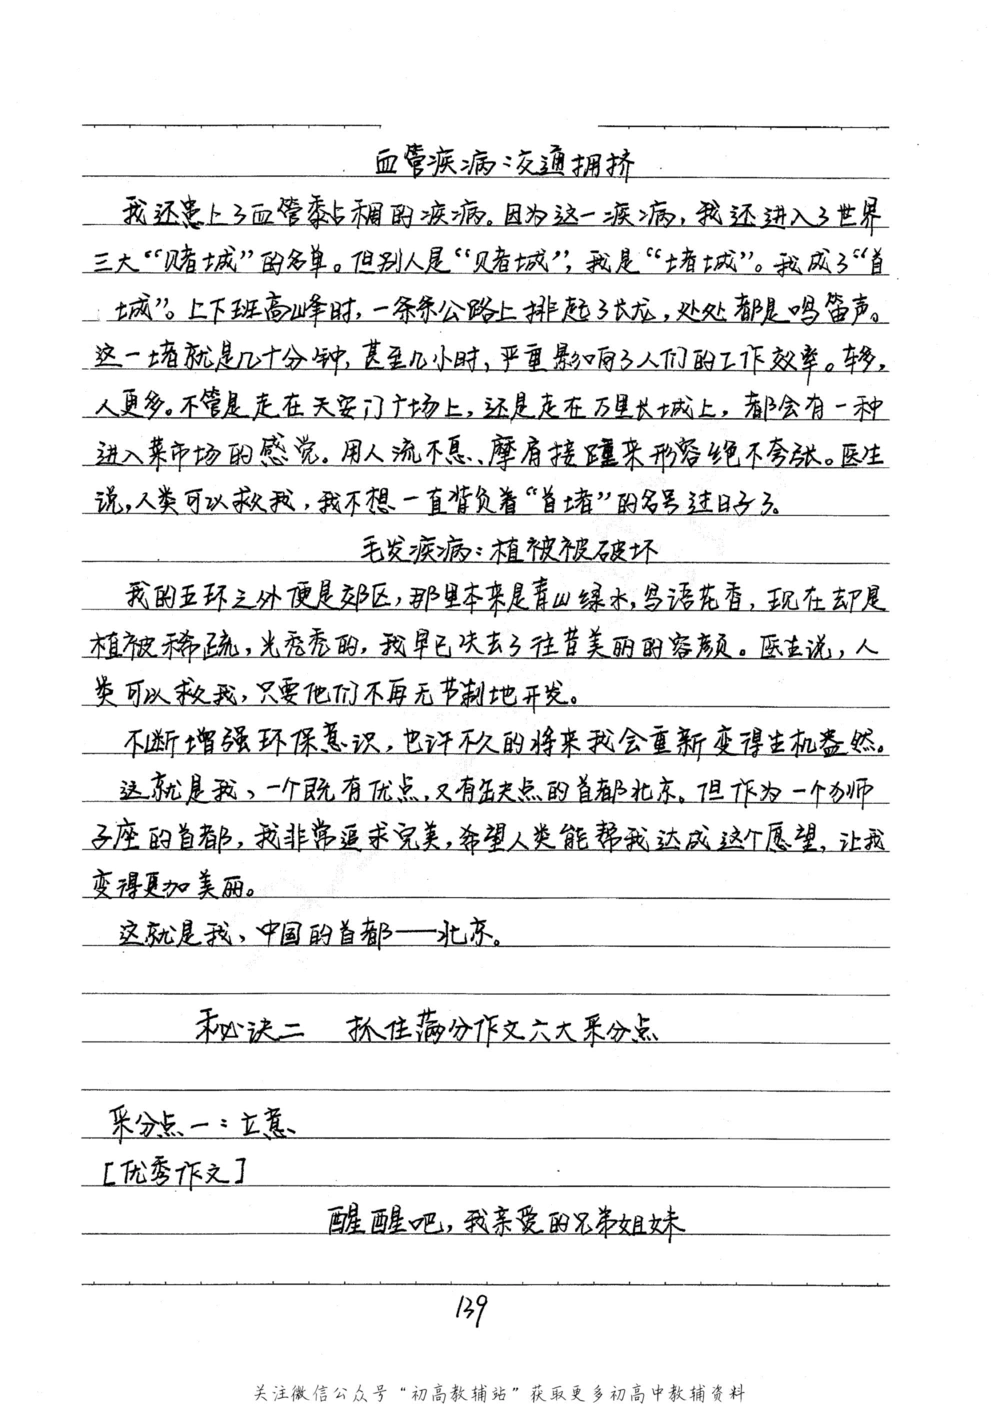 血管疾病:交通拥挤
我还患上了血管黏稠的疾病。因为这一疾病,我还进入了世界
三大“赌城”的名单。但别人是“赌城”,我是“堵城”。我成了“首
城”。上下班高峰时,一条条公路上排起了长龙,处处都是鸣笛声。
这一堵就是几十分钟,甚至几小时,严重影响了人们的工作效率。车多,
人更多。不管是走在天安门广场上,还是走在万里长城上,都会有一种
进入菜市场的感觉。用人流不息、摩肩接踵来形容绝不夸张。医生
说,人类可以救我,我不想一直背负着“首堵”的名号过日子了。
毛发疾病:植被被破坏
我的五环之外便是郊区,那里本来是青山绿水,鸟语花香,现在却是
植被稀疏,光秃秃的,我早已失去了往昔美丽的容颜。医生说,人
类可以救我,只要他们不再无节制地开发。
不断增强环保意识,也许不久的将来我会重新变得生机盎然。
这就是我,一个既有优点,又有缺点的首都北京。但作为一个狮
子座的首都,我非常追求完美,希望人类能帮我达成这个愿望,让我
变得更加美丽。
这就是我,中国的首都——北京。
秘诀二 抓住满分作文六大采分点
采分点一:立意
[优秀作文]
醒醒吧,我亲爱的兄弟姐妹
139
关注微信公众号“初高教辅站”获取更多初高中教辅资料